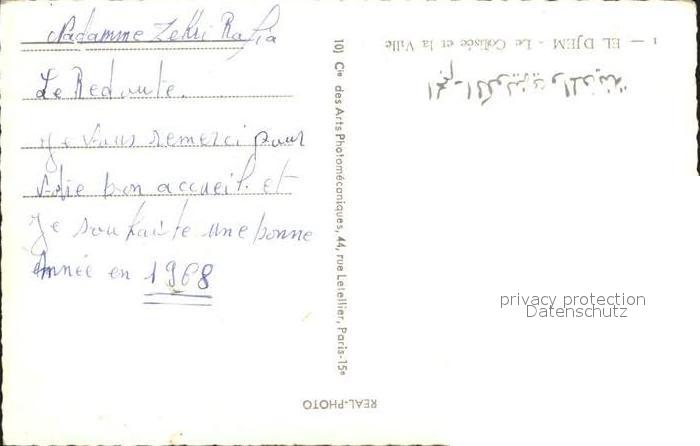 Madamme Zekri Rafia
Le Redoute.
Je vous remerci pour
votre bon accueil. et
je souhaite une bonne
Année en 1968
10) Cie des Arts Photomécaniques, 44, rue Letellier, Paris-15e
1 — EL DJEM - Le Colisée et la Ville
REAL-PHOTO
privacy protection
Datenschutz